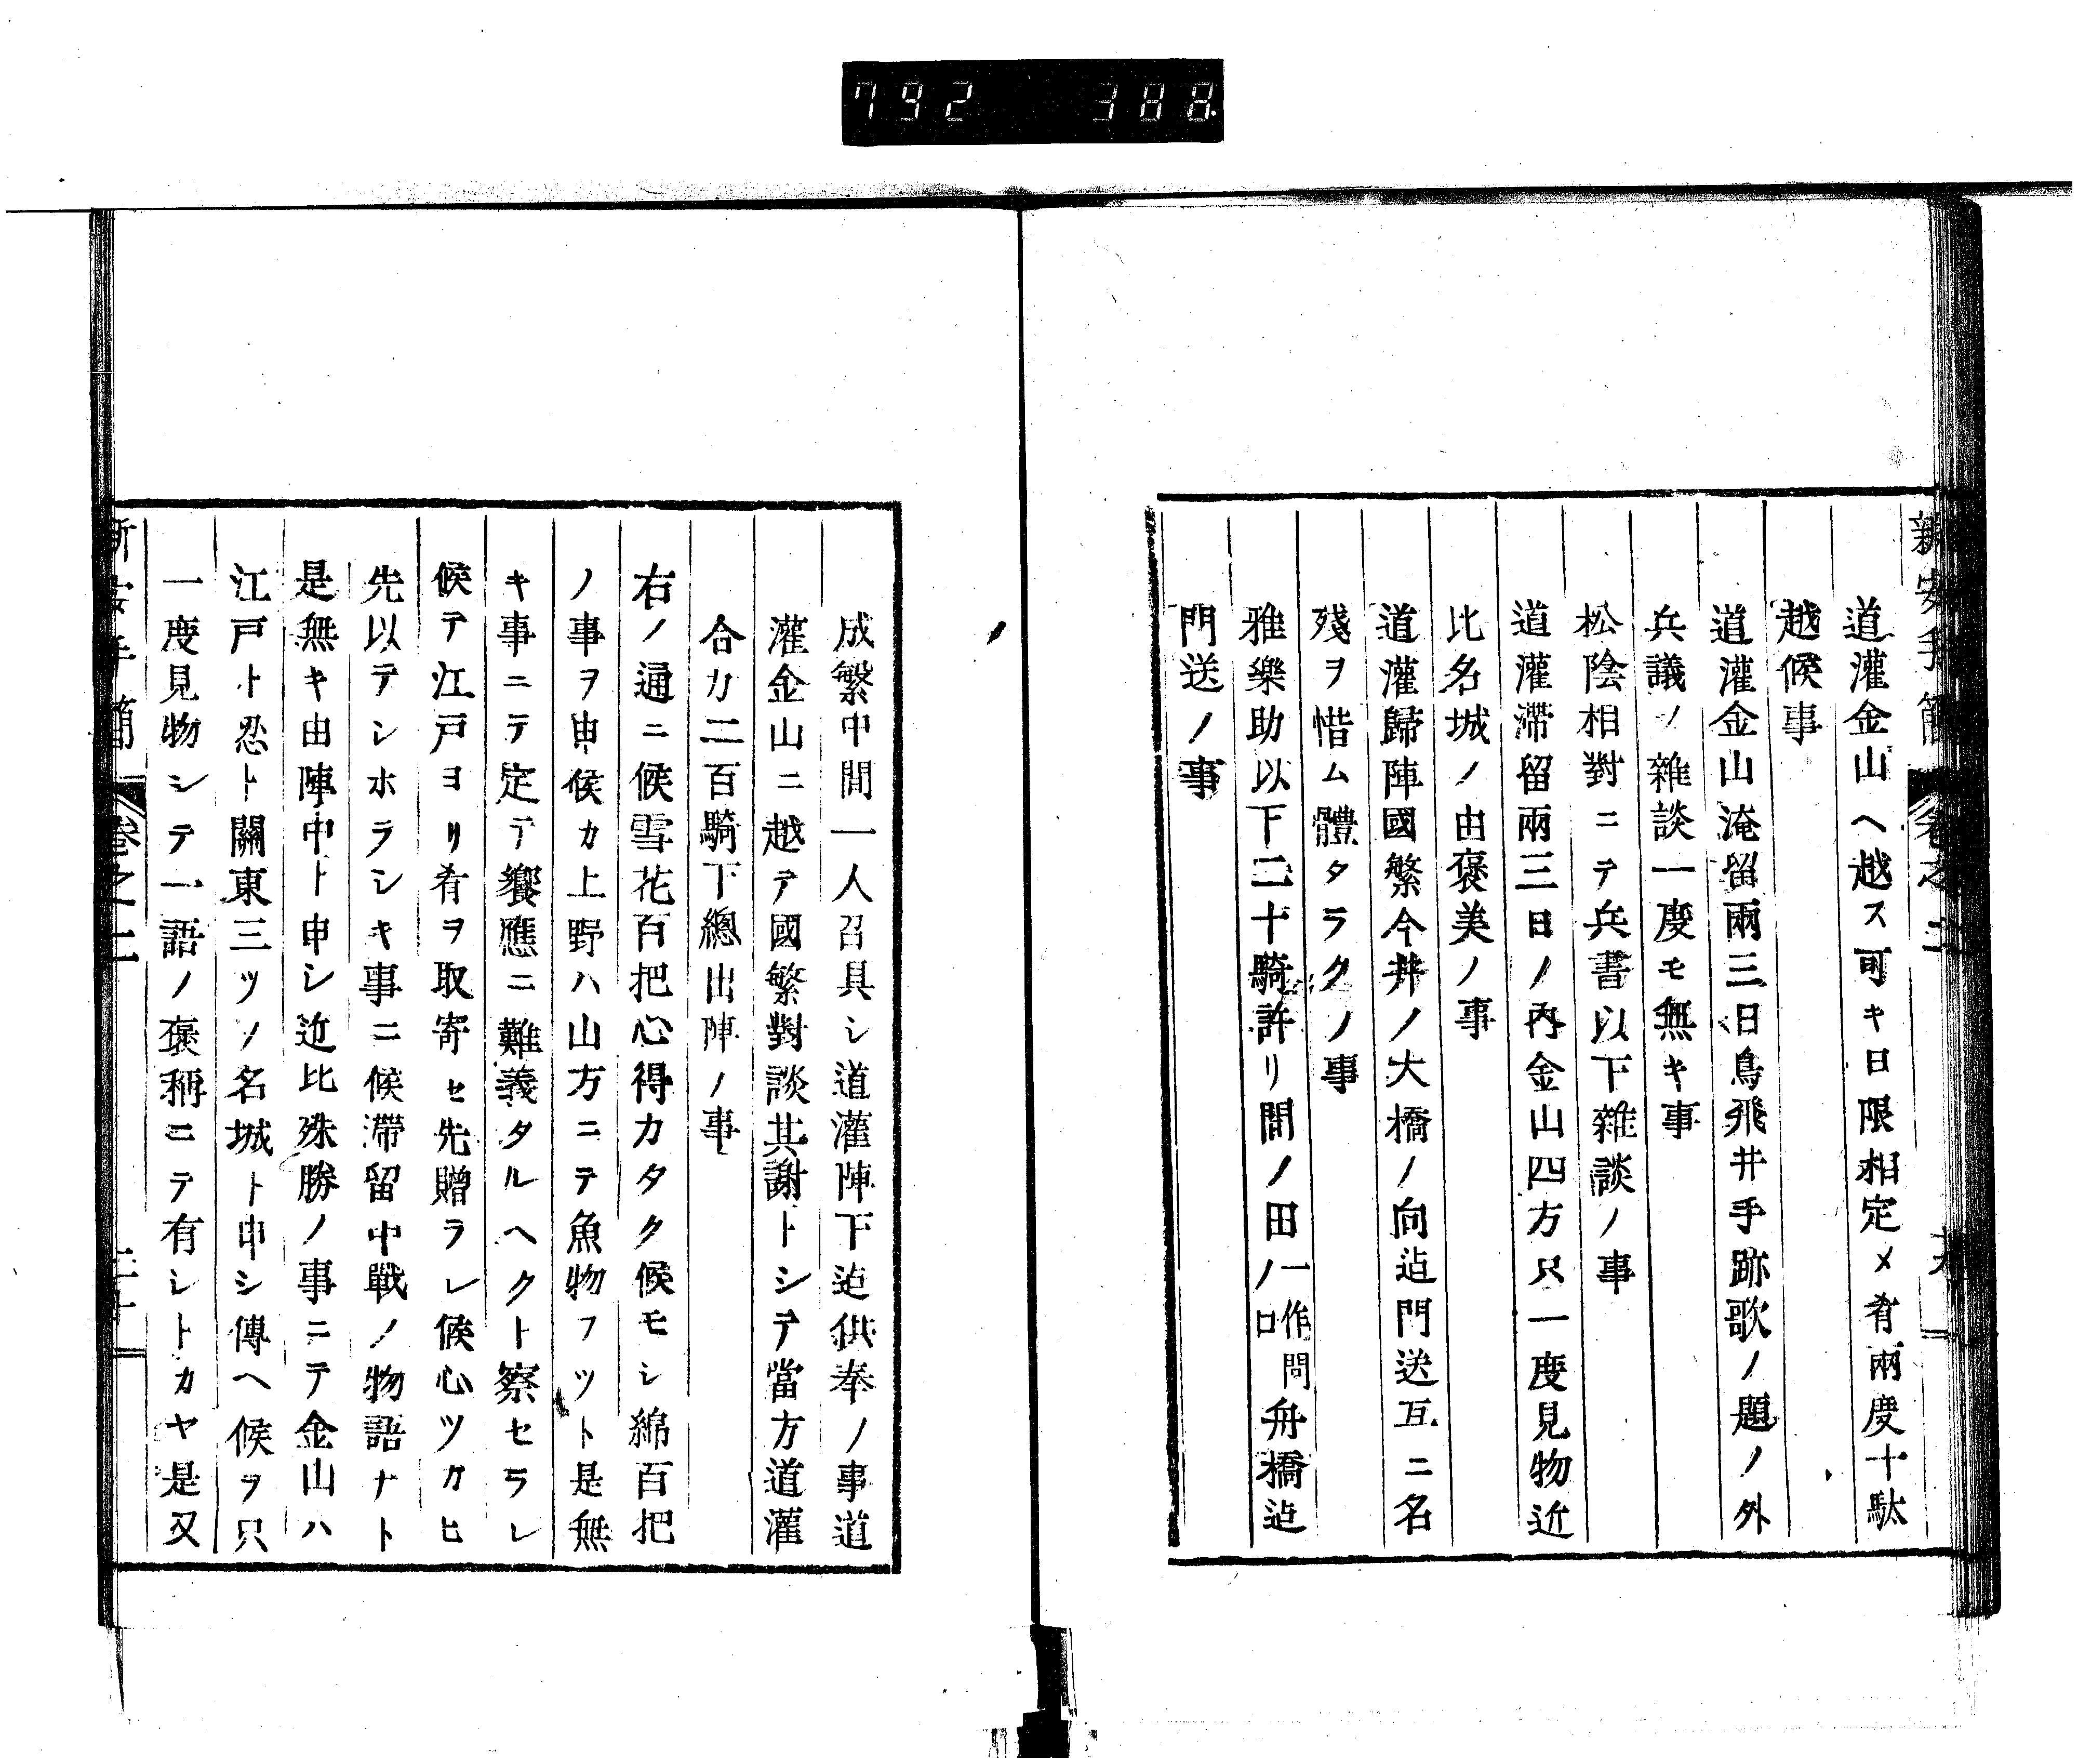 792 388
新安手簡 卷之二
道灌金山ヘ越ス可キ日限相定メ肴兩度十駄
越候事
道灌金山淹留兩三日鳥飛井手跡歌ノ題ノ外
兵議ノ雜談一度モ無キ事
松陰相對ニテ兵書以下雜談ノ事
道灌滯留兩三日ノ內金山四方只一度見物近
比名城ノ由褒美ノ事
道灌歸陣國繁今井ノ大橋ノ向迠門送互ニ名
殘ヲ惜ム體タラクノ事
雅樂助以下二十騎許リ間ノ田ノ一作問口舟橋迠
門送ノ事
成繁中間一人召具シ道灌陣下迠供奉ノ事道
灌金山ニ越テ國繁對談其謝トシテ當方道灌
合力二百騎下總出陣ノ事
右ノ通ニ候雪花百把心得カタク候モシ綿百把
ノ事ヲ申候カ上野ハ山方ニテ魚物フツト是無
キ事ニテ定テ饗應ニ難義タルヘクト察セラレ
候テ江戸ヨリ肴ヲ取寄セ先贈ラレ候心ツカヒ
先以テシホラシキ事ニ候滯留中戰ノ物語ナト
是無キ由陣中ト申シ近比殊勝ノ事ニテ金山ハ
江戸ト忍ト關東三ツノ名城ト申シ傳ヘ候ヲ只
一度見物シテ一語ノ褒稱ニテ有シトカヤ是又
新安手簡 卷之二 二十